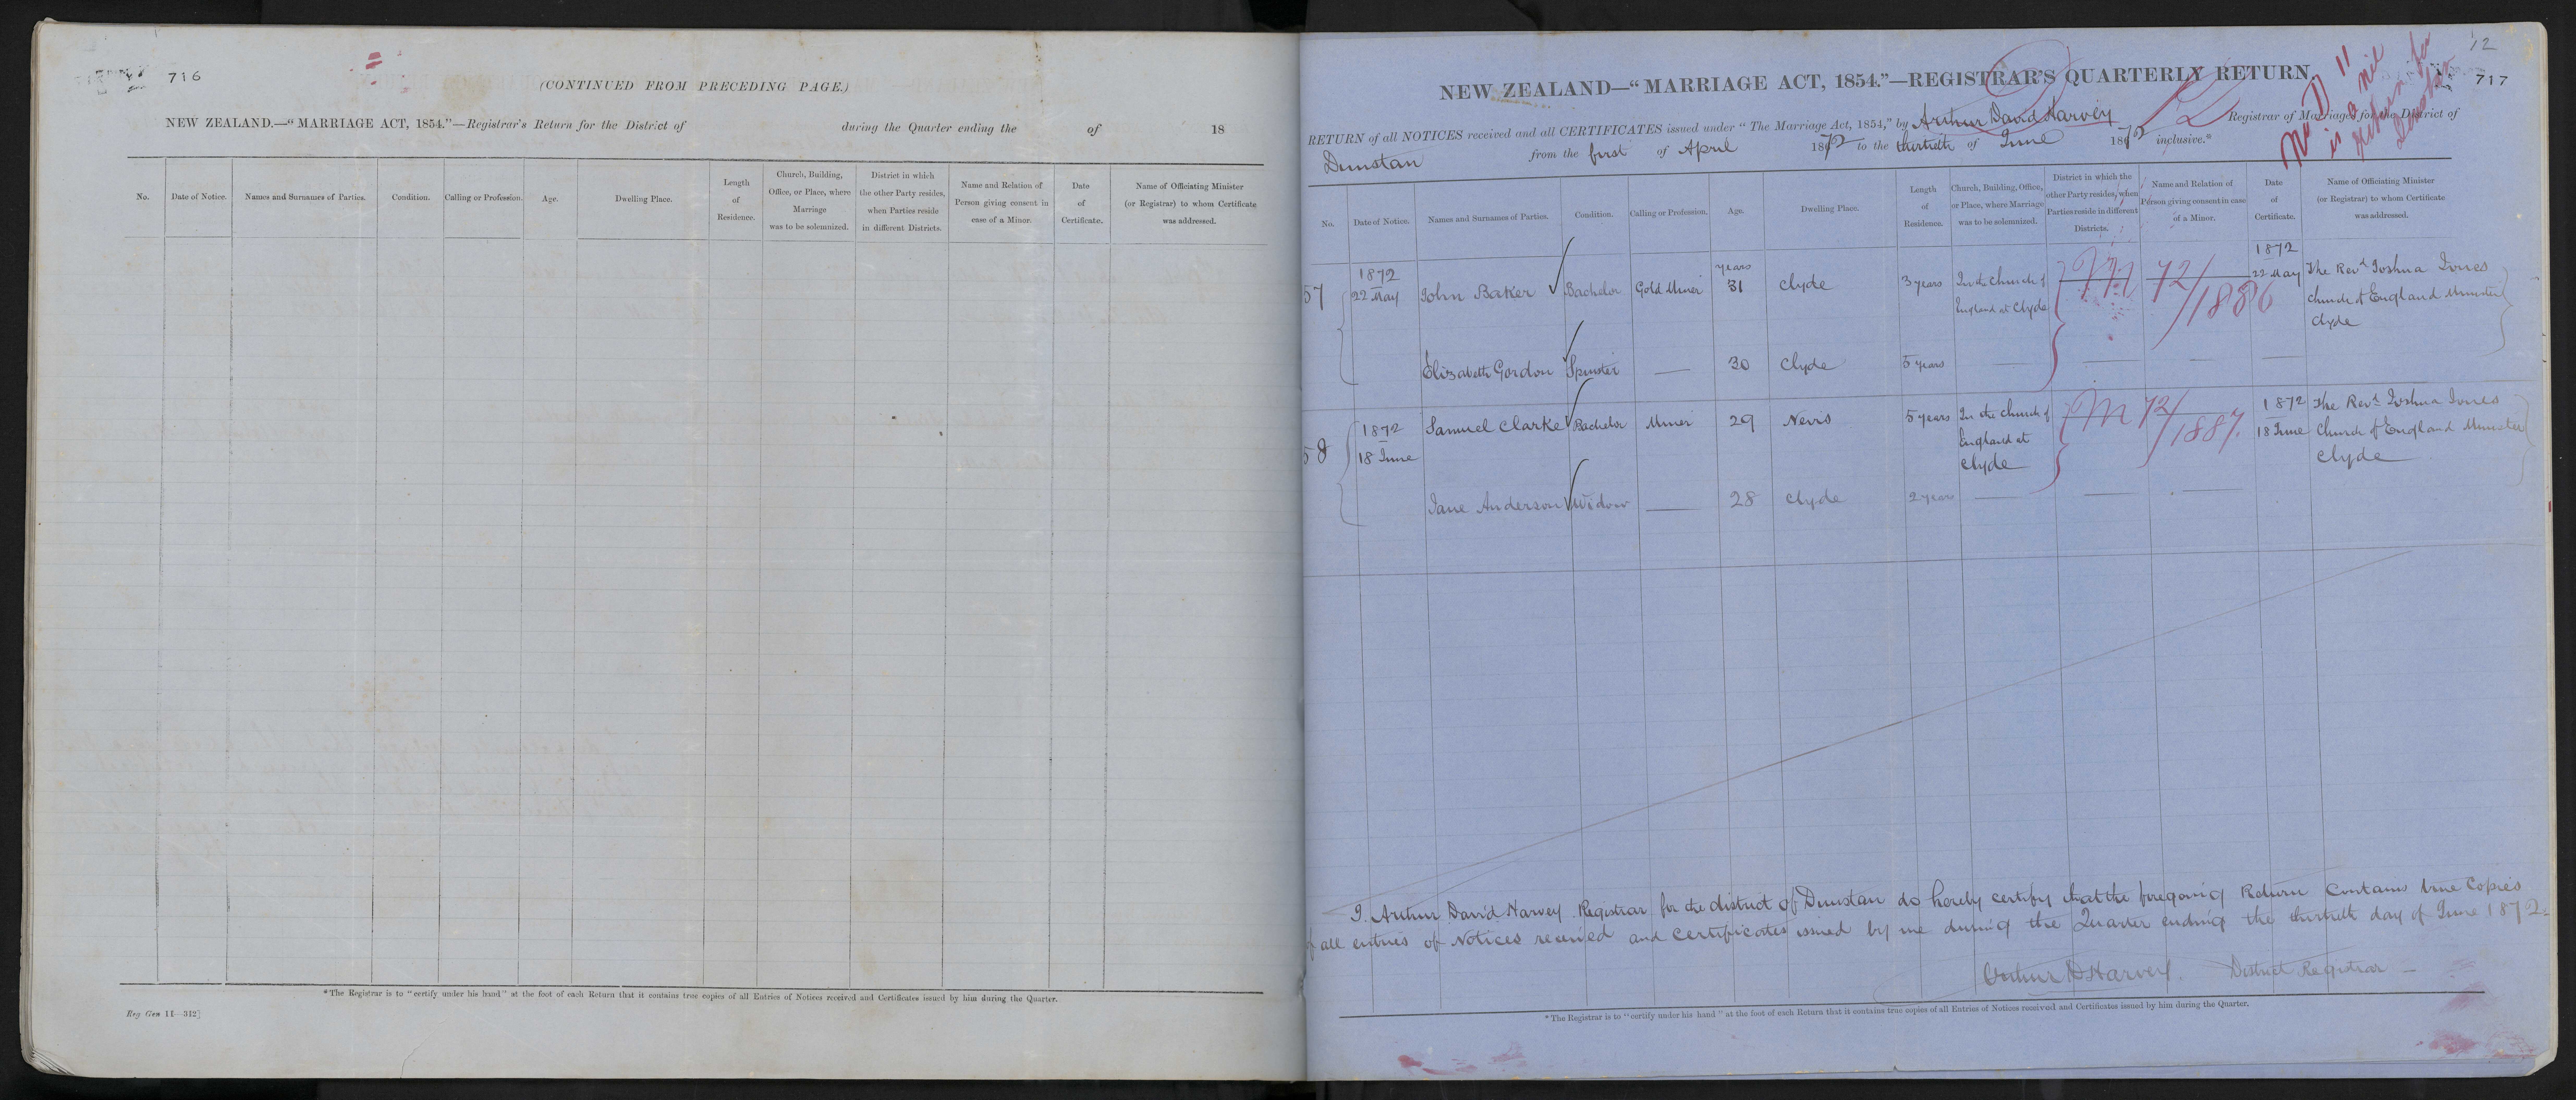 716
(CONTINUED FROM PRECEDING PAGE.)
NEW ZEALAND.—"MARRIAGE ACT, 1854."—Registrar's Return for the District of during the Quarter ending the of 18
No. Date of Notice. Names and Surnames of Parties. Condition. Calling or Profession. Age. Dwelling Place. Length of Residence. Church, Building, Office, or Place, where Marriage was to be solemnized. District in which the other Party resides, when Parties reside in different Districts. Name and Relation of Person giving consent in case of a Minor. Date of Certificate. Name of Officiating Minister (or Registrar) to whom Certificate was addressed.
*The Registrar is to "certify under his hand" at the foot of each Return that it contains true copies of all Entries of Notices received and Certificates issued by him during the Quarter.
Reg Gen 11—312]
12
717
No 11
is a nil
return for
Dunstan
NEW ZEALAND—"MARRIAGE ACT, 1854."—REGISTRAR'S QUARTERLY RETURN.
RETURN of all NOTICES received and all CERTIFICATES issued under "The Marriage Act, 1854," by Arthur David Harvey Registrar of Marriages for the District of
Dunstan from the first of April 1872 to the thirtieth of June 1872 inclusive.*
No. Date of Notice. Names and Surnames of Parties. Condition. Calling or Profession. Age. Dwelling Place. Length of Residence. Church, Building, Office, or Place, where Marriage was to be solemnized. District in which the other Party resides, when Parties reside in different Districts. Name and Relation of Person giving consent in case of a Minor. Date of Certificate. Name of Officiating Minister (or Registrar) to whom Certificate was addressed.
57 1872 22 May John Baker Bachelor Gold Miner years 31 Clyde 3 years In the Church of England at Clyde M 72/1886 1872 22 May The Revd Joshua Jones Church of England Minister Clyde
Elizabeth Gordon Spinster — 30 Clyde 5 years — — — —
58 1872 18 June Samuel Clarke Bachelor Miner 29 Nevis 5 years In the Church of England at Clyde M 72/1887. 1872 18 June The Revd Joshua Jones Church of England Minister Clyde
Jane Anderson Widow — 28 Clyde 2 years — — —
I. Arthur David Harvey Registrar for the district of Dunstan do hereby certify that the foregoing Return Contains true Copies
of all entries of Notices received and Certificates issued by me during the Quarter ending the thirtieth day of June 1872.
Arthur D Harvey. District Registrar —
*The Registrar is to "certify under his hand" at the foot of each Return that it contains true copies of all Entries of Notices received and Certificates issued by him during the Quarter.